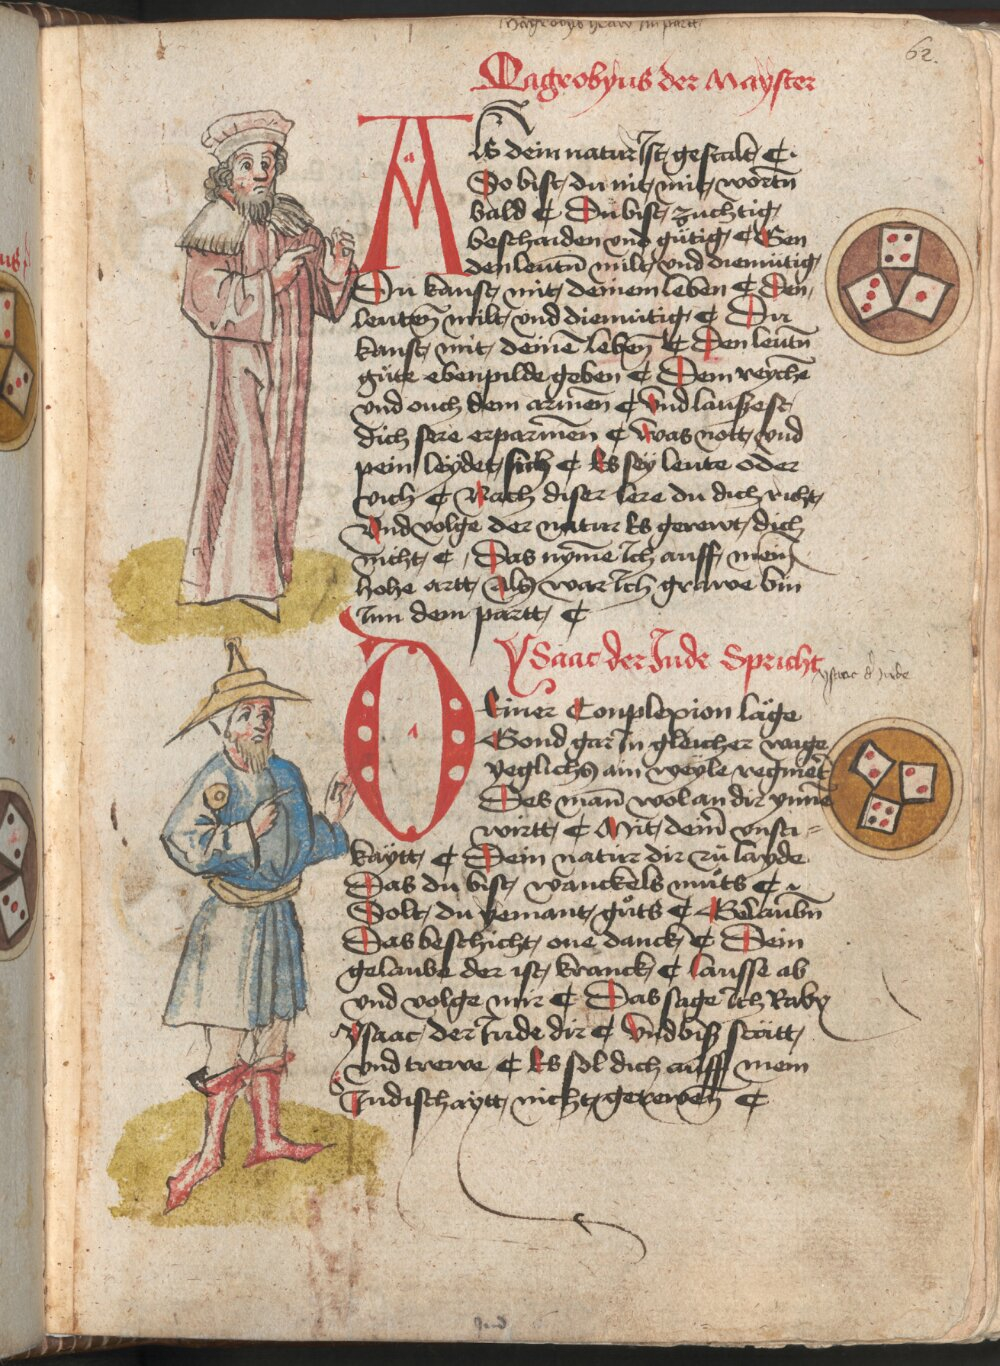 62.
Magrobyus der Mayster
Als dein natur Ist gestalt ¶.
So bist du nit mit wortn
bald ¶ Du bist zuchtig
beschaiden vnd gütig ¶ Gen
den leutn milt vnd diemütig
Du kanst mit deinem leben ¶ Den
leuten milt vnd diemutig ¶ Du
kanst mit deinē leben ¶ Den leutn
güte ebenpilde geben ¶ Dem reychē
vnd ouch dem armen ¶ Vnd laussest
dich sere erparmen ¶ Was nott vnd
pein leydet sich ¶ Es sey leute oder
vich ¶ Nach diser lere du dich richt
Vnd volge der natur Es gerewt dich
nicht ¶ Das nyme Ich auff mein
hohe artt Als war Ich grawe bin
Inn dem partt ¶
Ysaac der Jude Spricht
ysaac d Jude
Deiner Conplexion läge
Gond gar In gleicher wage
yeglichs ain weyle regniert
Des man wol an dir ynnē
wirtt ¶ Mit deinē vnsti=
kaytt ¶ Dein natur dir zü layde
Das du bist wanckels müts ¶
Solt du yemant güts ¶ Gelaubn
Das beschicht one danck ¶ Dein
gelaube der ist kranck ¶ lausse ab
vnd volge mir ¶ Das sage Ich Raby
ysaac der Jude dir ¶ Vnd biß stätt
vnd trewe ¶ Es sol dich auff mein
Judischaytt nicht gerewen ¶